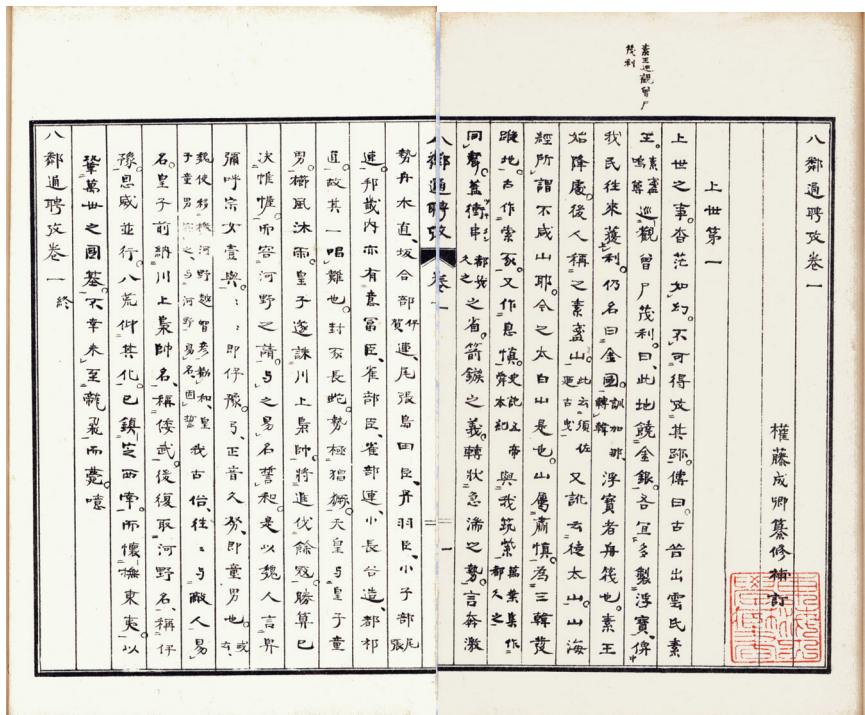 素王巡觀曾尸
茂利
八鄰通聘攷卷一
權藤成卿纂修補訂
上世第一
上世之事。杳茫如幻。不可得攷其跡。傳曰。古昔出雲民素
王。素盞嗚尊巡觀曾尸茂利。曰、此地饒金銀。吾宜多製浮寶、俾
我民往來獲利。仍名曰金國。訓加那、轉韓 浮寶者舟筏也。素王
始降處。後人稱之素盞山。此云須佐 又訛云徒太山。山海
經所謂不咸山耶。今之太白山是也。山屬肅愼。為三韓發
跡地。古作 又作息愼。史記五帝舜本紀 與我筑紫 萬葉集作都久之
同聲。蓋衝串 都我久之 之省。箭鏃之義。轉狀急湍之勢。言奔激
八鄰通聘攷 卷一 一
勢舟木直、坂合部 連、尾張島田臣、丹羽臣、小子部 尾張
連、邦畿内亦有意冨臣、雀部臣、雀部連、小長谷造、都祁
直。故其一唱難也。封豕長蛇。勢極猖獗。天皇与皇子童
男。櫛風沐雨。皇子遂誅川上梟帥。將進伐餘寇。勝算已
決帷幄。而容河野之請。与之易名誓和。是以魏人言卑
彌呼宗女壹與。
名。皇子前納川上梟帥名、稱倭武。後復取河野名、稱伃
豫。恩威並行。八荒仰其化。已鎮芝西陲。而懷撫東夷。以
鞏萬世之國基。不幸未至 而薨。噫
八鄰通聘攷卷一 終